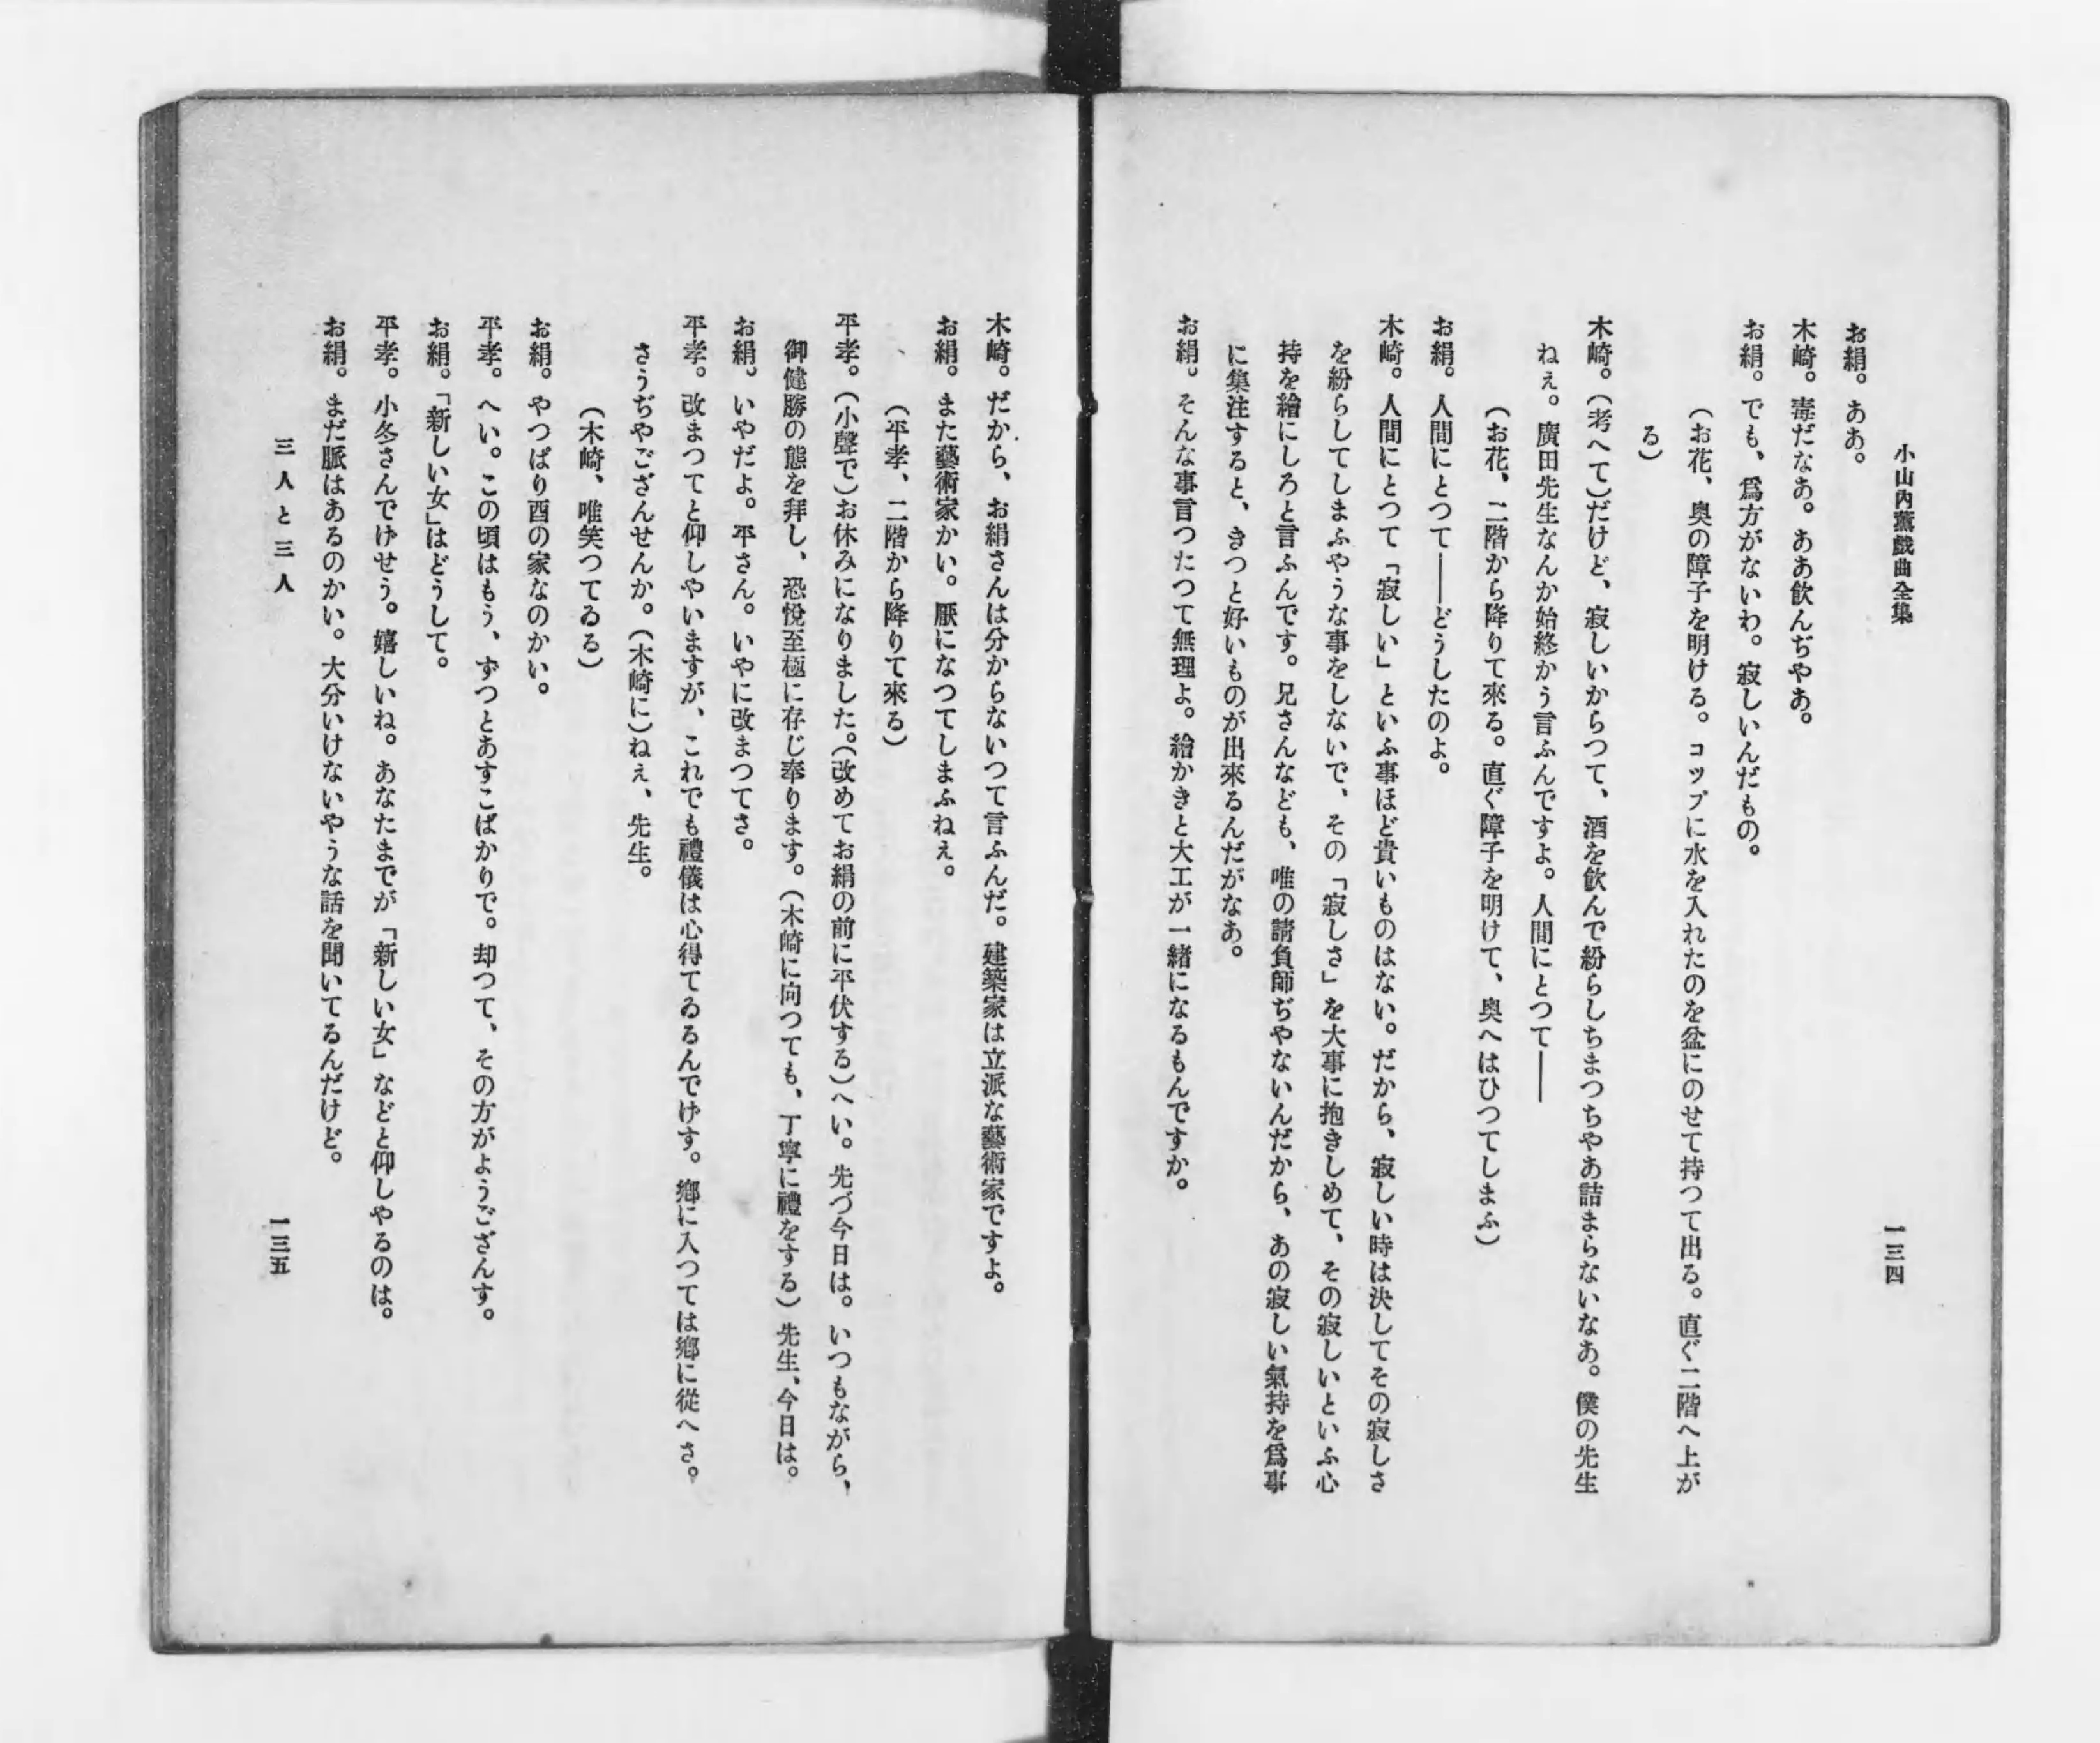 小山内薫戯曲全集
一三四
お絹。ああ。
木崎。毒だなあ。ああ飲んぢやあ。
お絹。でも、爲方がないわ。寂しいんだもの。
（お花、奥の障子を明ける。コップに水を入れたのを盆にのせて持つて出る。直ぐ二階へ上が
る）
木崎。（考へて）だけど、寂しいからつて、酒を飲んで紛らしちまつちやあ詰まらないなあ。僕の先生
ねえ。廣田先生なんか始終かう言ふんですよ。人間にとつて――
（お花、二階から降りて來る。直ぐ障子を明けて、奥へはひつてしまふ）
お絹。人間にとつて――どうしたのよ。
木崎。人間にとつて「寂しい」といふ事ほど貴いものはない。だから、寂しい時は決してその寂しさ
を紛らしてしまふやうな事をしないで、その「寂しさ」を大事に抱きしめて、その寂しいといふ心
持を繪にしろと言ふんです。兄さんなども、唯の請負師ぢやないんだから、あの寂しい氣持を爲事
に集注すると、きつと好いものが出來るんだがなあ。
お絹。そんな事言つたつて無理よ。繪かきと大工が一緒になるもんですか。
木崎。だから、お絹さんは分からないつて言ふんだ。建築家は立派な藝術家ですよ。
お絹。また藝術家かい。厭になつてしまふねえ。
（平孝、二階から降りて來る）
平孝。（小聲で）お休みになりました。（改めてお絹の前に平伏する）へい。先づ今日は。いつもながら、
御健勝の態を拜し、恐悅至極に存じ奉ります。（木崎に向つても、丁寧に禮をする）先生、今日は。
お絹。いやだよ。平さん。いやに改まつてさ。
平孝。改まつてと仰しやいますが、これでも禮儀は心得てゐるんでげす。鄕に入つては鄕に從へさ。
さうぢやござんせんか。（木崎に）ねえ、先生。
（木崎、唯笑つてゐる）
お絹。やつぱり酉の家なのかい。
平孝。へい。この頃はもう、ずつとあすこばかりで。却つて、その方がようござんす。
お絹。「新しい女」はどうして。
平孝。小冬さんでげせう。嬉しいね。あなたまでが「新しい女」などと仰しやるのは。
お絹。まだ脈はあるのかい。大分いけないやうな話を聞いてるんだけど。
三人と三人
一三五